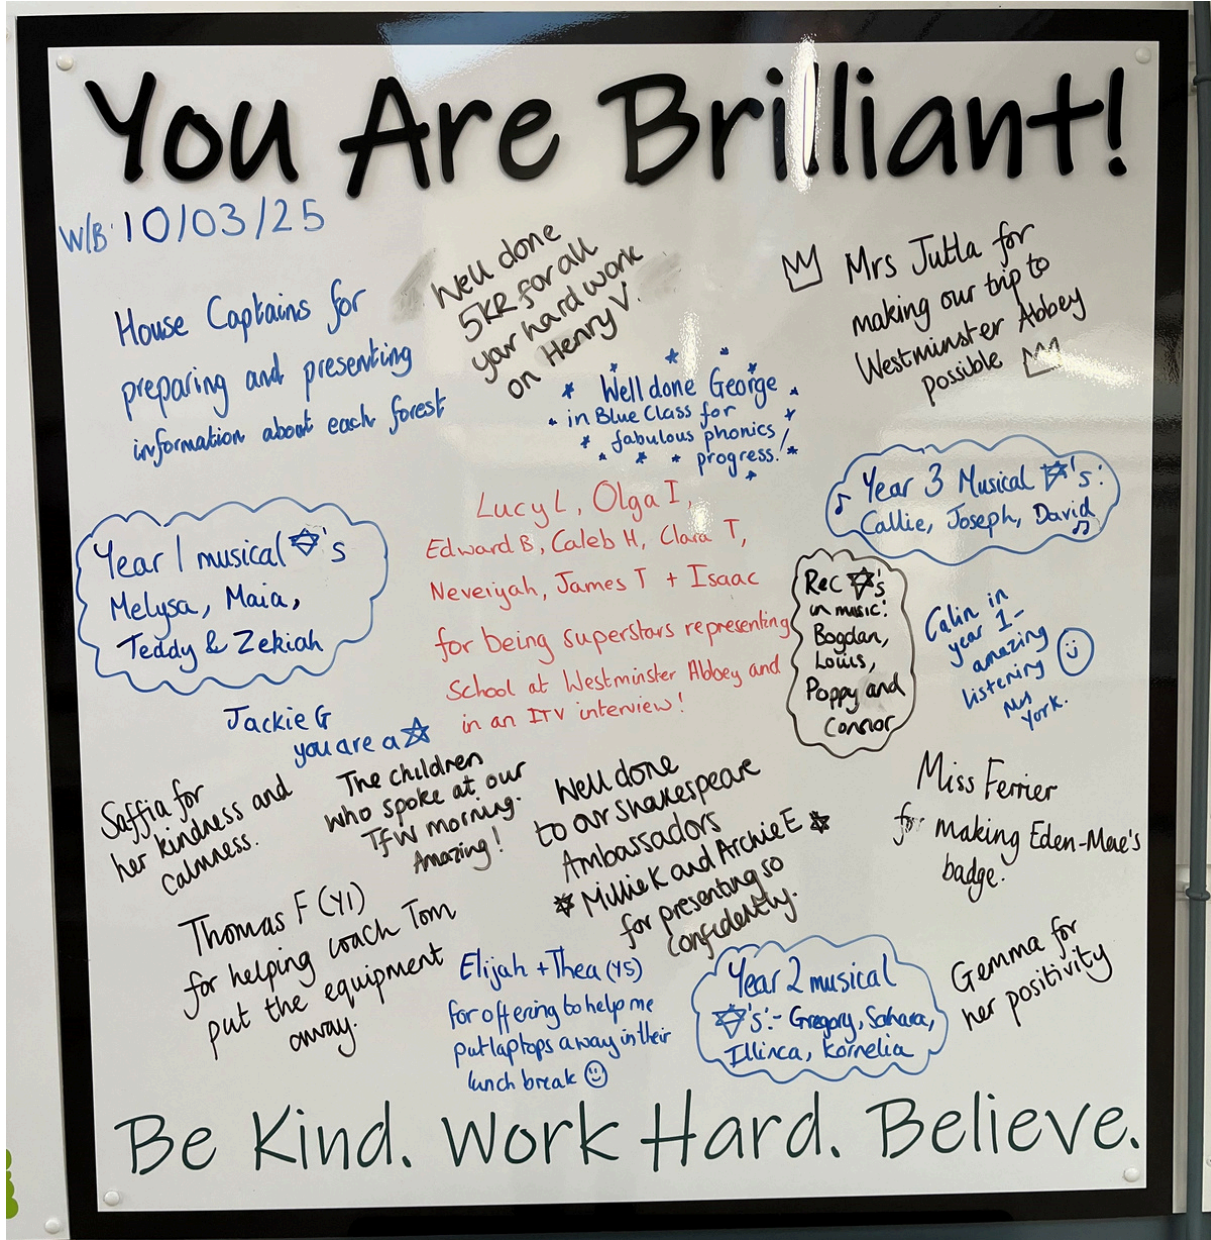 You Are Brilliant!
W/B: 10/03/25
House Captains for
preparing and presenting
information about each forest
Well done
5KR for all
your hard work
on Henry V.
Mrs Jutla for
making our trip to
Westminster Abbey
possible
Well done George
in Blue Class for
fabulous phonics
progress!
Year 3 Musical ✡'s:
Callie, Joseph, David
Year 1 musical ✡'s
Melysa, Maia,
Teddy & Zekiah
Lucy L, Olga I,
Edward B, Caleb H, Clara T,
Neveiyah, James T + Isaac
for being superstars representing
School at Westminster Abbey and
in an ITV interview!
Rec ✡'s
in music:
Bogdan,
Louis,
Poppy and
Connor
Calin in
year 1-
amazing
listening
My
York.
Jackie G
you are a ☆
Saffia for
her kindness and
calmness.
The children
who spoke at our
TFW morning.
Amazing!
Well done
to our Shakespeare
Ambassadors
Millie K and Archie E
for presenting so
confidently.
Miss Ferrier
for making Eden-Mae's
badge.
Thomas F (Y1)
for helping coach Tom
put the equipment
away.
Elijah + Thea (Y5)
for offering to help me
put laptops away in their
lunch break ☺
Year 2 musical
✡'s:- Gregory, Sahara,
Illinca, Kornelia
Gemma for
her positivity
Be Kind. Work Hard. Believe.